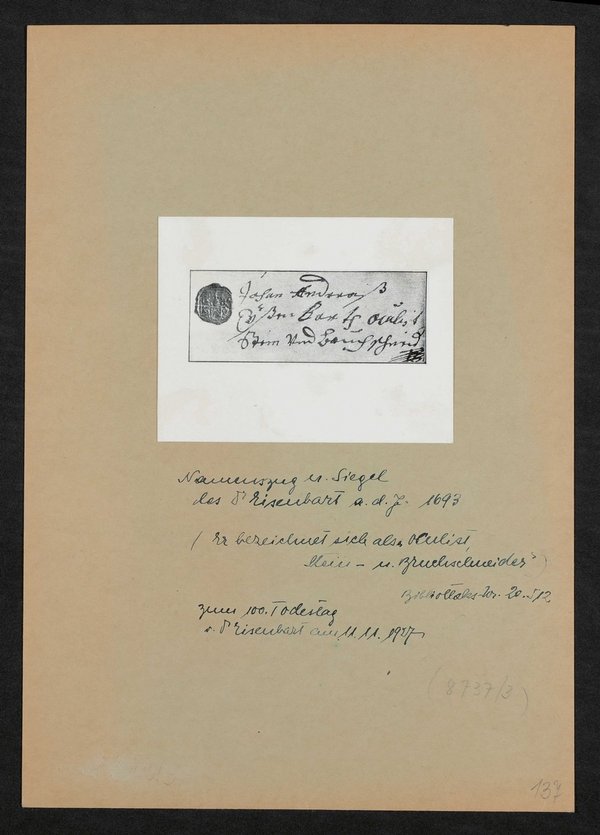 Johan Andreaß
Eÿßenbarth Oculist
Stein Vnd Bruchschneid
Namenszug u. Siegel
des Dr Eisenbart a. d. J. 1693
(Er bezeichnet sich als „Okulist,
Stein- u. Bruchschneider")
Bibliotheks-Nr. 20.
zum 100. Todestag
v. Dr Eisenbart am 11.11.1927
(8737/3)
137